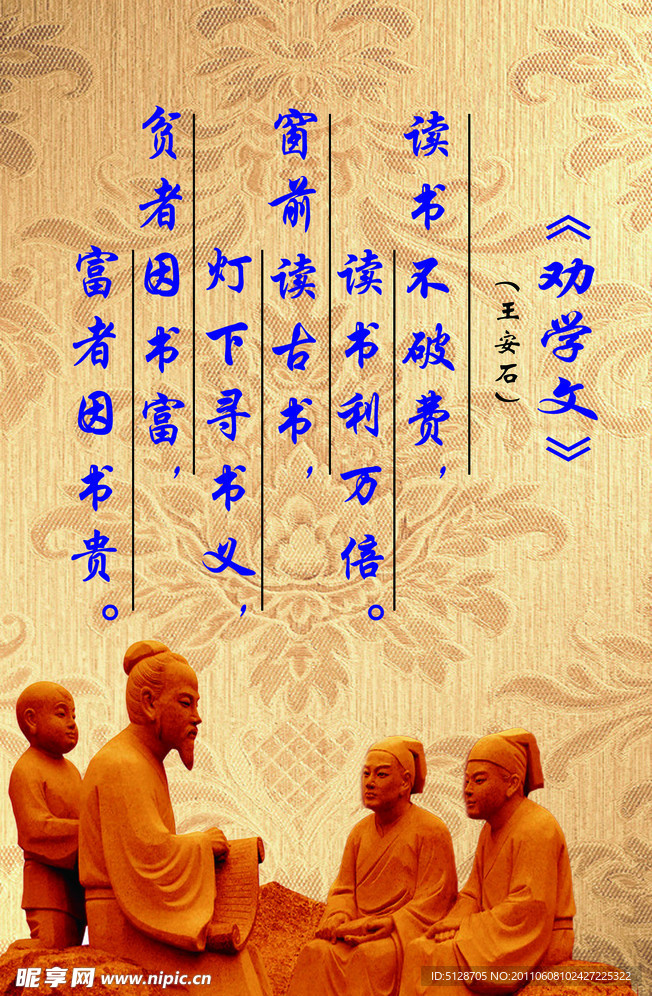 《劝学文》
（王安石）
读书不破费，
读书利万倍。
窗前读古书，
灯下寻书义，
贫者因书富，
富者因书贵。
昵享网 www.nipic.cn
ID:5128705 NO:20110608102427225322